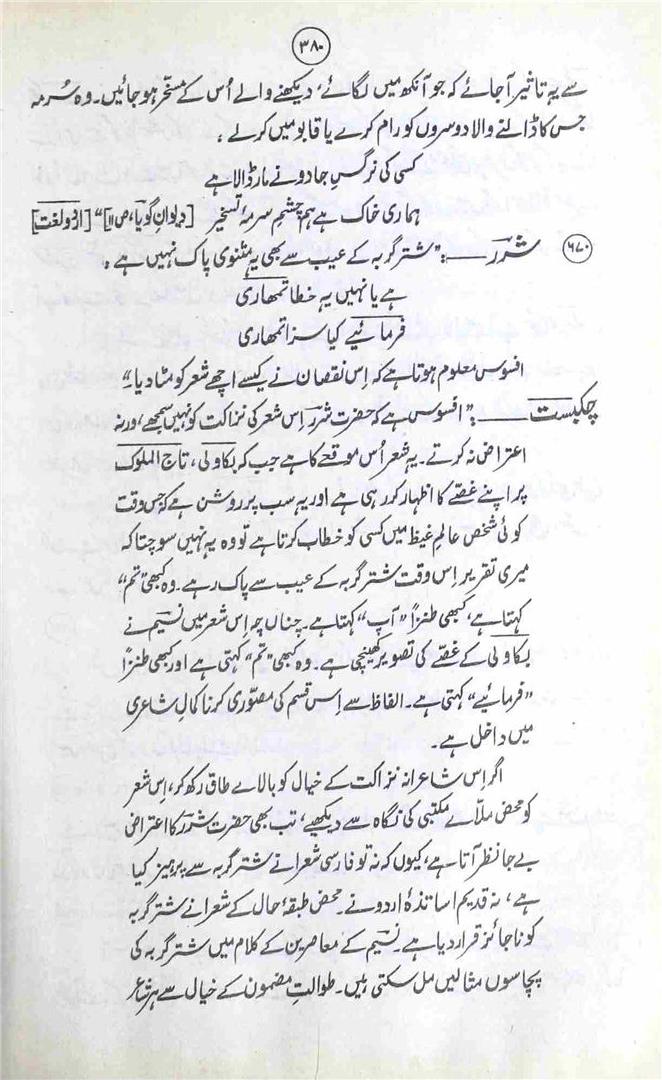 ۳۸۰
سے یہ تاثیر آ جائے کہ جو آنکھ میں لگائے، دیکھنے والے اُس کے مسخّر ہو جائیں۔ وہ سُرمہ
جس کا ڈالنے والا دوسروں کو رام کرے یا قابو میں کر لے:
کسی کی نرگسِ جادو نے مار ڈالا ہے
ہماری خاک ہے ہم چشمِ سرمۂ تسخیر [دیوانِ گویا، ص۱۱]“ [اردو لغت]
۶۷۰ شررؔ ـــــ: ”شتر گربہ کے عیب سے بھی یہ مثنوی پاک نہیں ہے:
ہے یا نہیں یہ خطا تمھاری
فرمائیے کیا سزا تمھاری
افسوس معلوم ہوتا ہے کہ اِس نقصان نے کیسے اچھے شعر کو مٹا دیا“
چکبست ـــــ: ”افسوس ہے کہ حضرت شررؔ اِس شعر کی نزاکت کو نہیں سمجھے، ورنہ
اعتراض نہ کرتے۔ یہ شعر اُس موقعے کا ہے جب کہ بکاولی، تاج الملوک
پر اپنے غصّے کا اظہار کر رہی ہے اور یہ سب پر روشن ہے کہ جس وقت
کوئی شخص عالمِ غیظ میں کسی کو خطاب کرتا ہے تو وہ یہ نہیں سوچتا کہ
میری تقریر اِس وقت شتر گربہ کے عیب سے پاک رہے۔ وہ کبھی ”تم“
کہتا ہے، کبھی طنزاً ”آپ“ کہتا ہے۔ چناں چہ اِس شعر میں نسیمؔ نے
بکاولی کے غصّے کی تصویر کھینچی ہے۔ وہ کبھی ”تم“ کہتی ہے اور کبھی طنزاً
”فرمائیے“ کہتی ہے۔ الفاظ سے اِس قسم کی مصوّری کرنا کمالِ شاعری
میں داخل ہے۔
اگر اِس شاعرانہ نزاکت کے خیال کو بالائے طاق رکھ کر، اِس شعر
کو محض ملّائے مکتبی کی نگاہ سے دیکھیے، تب بھی حضرت شررؔ کا اعتراض
بے جا نظر آتا ہے، کیوں کہ نہ تو فارسی شعرا نے شتر گربہ سے پرہیز کیا
ہے، نہ قدیم اساتذۂ اردو نے۔ محض طبقۂ حال کے شعرا نے شتر گربہ
کو ناجائز قرار دیا ہے۔ نسیمؔ کے معاصرین کے کلام میں شتر گربہ کی
پچاسوں مثالیں مل سکتی ہیں۔ طوالتِ مضمون کے خیال سے ہر شاعر